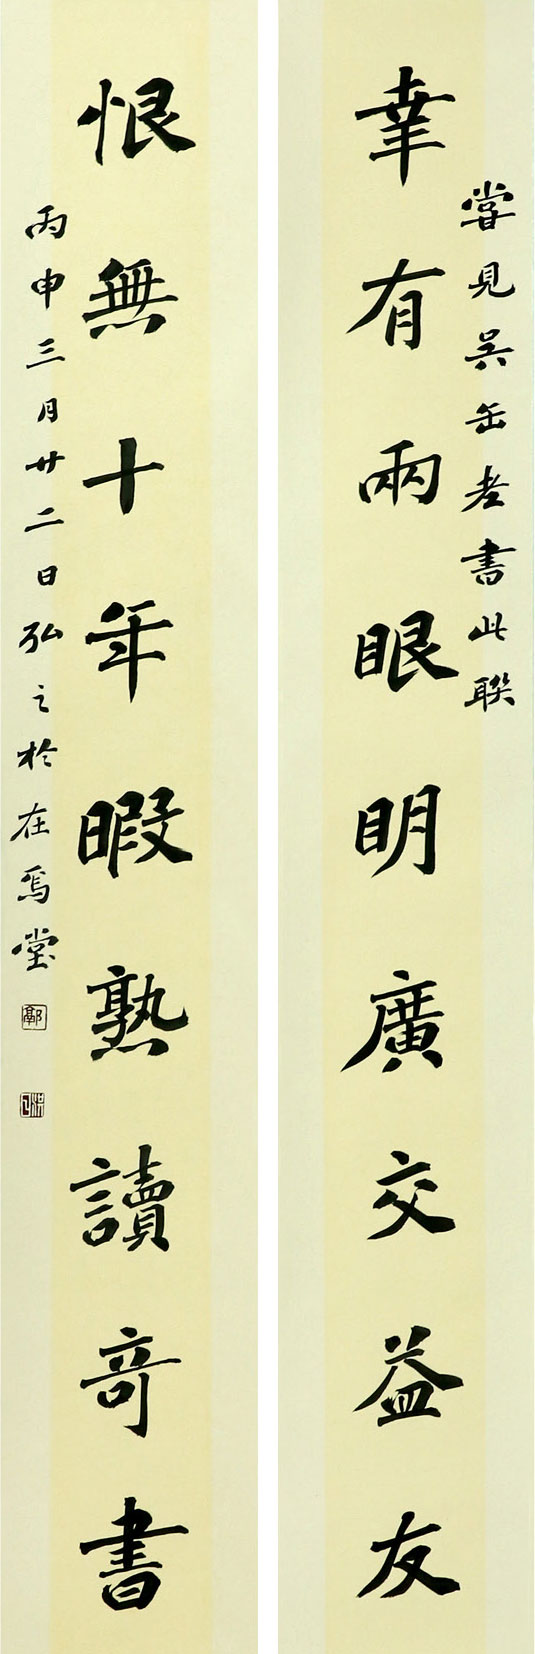 嘗見吴缶老書此聯
幸有兩眼明廣交益友
恨無十年暇熟讀奇書
丙申三月廿二日弘之於在焉堂
鄭